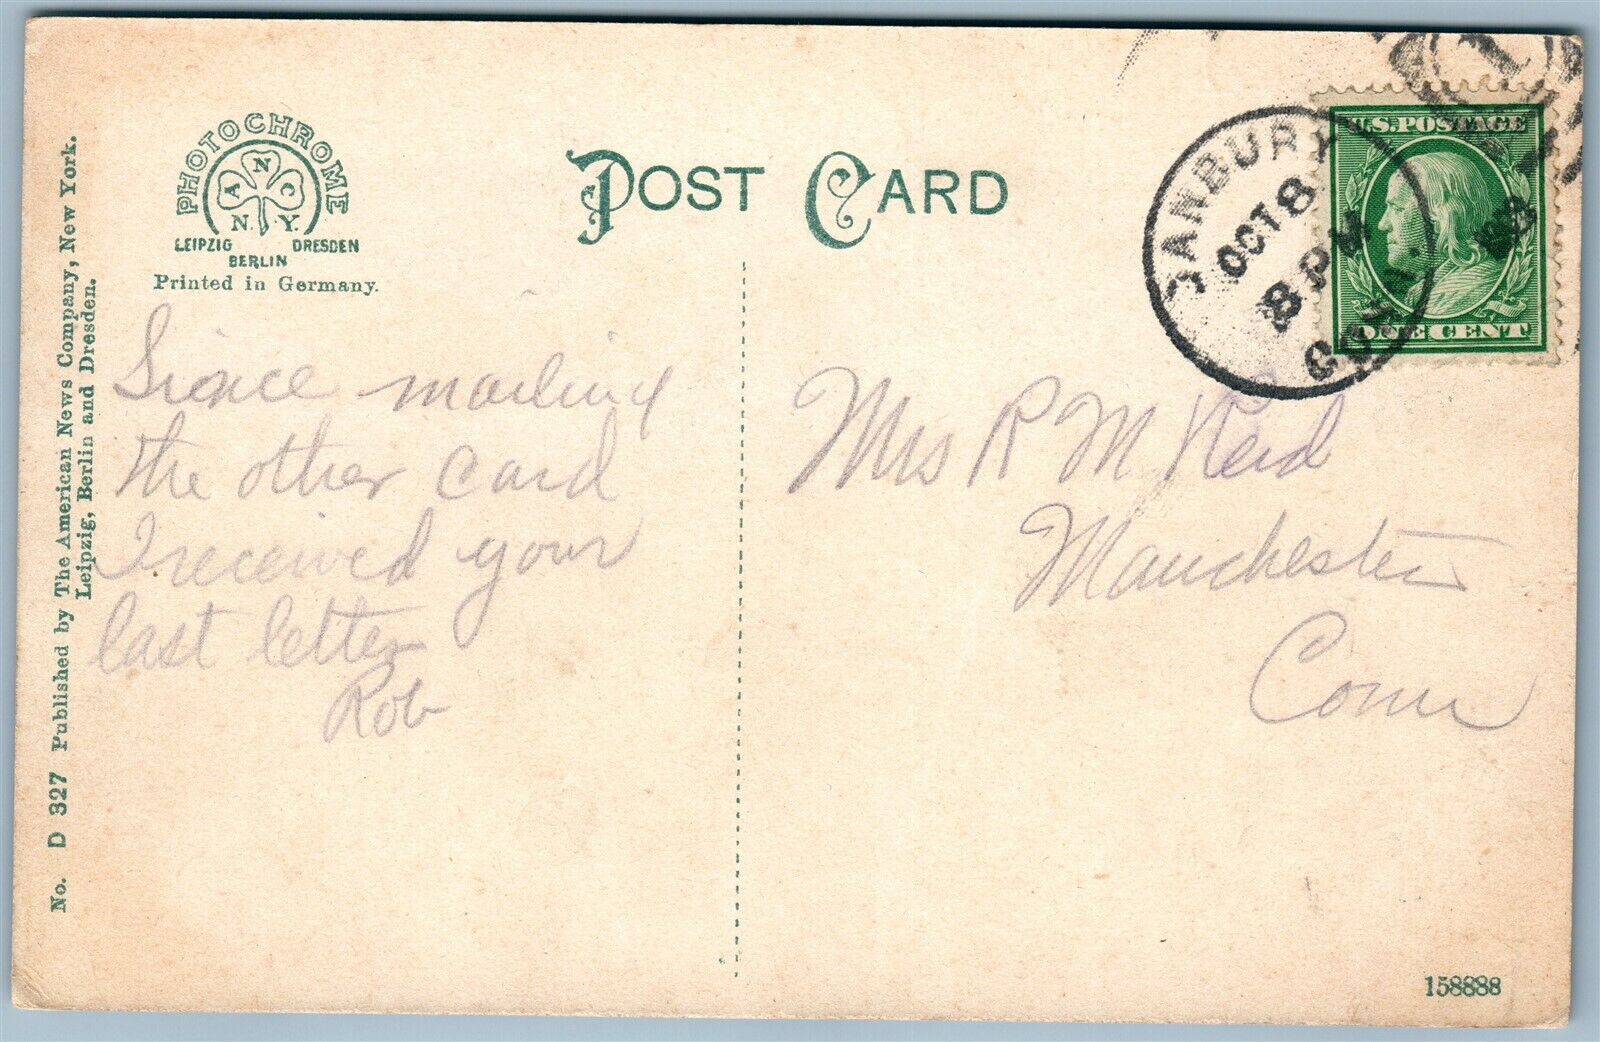 PHOTOCHROME
A N C
N. Y.
LEIPZIG DRESDEN
BERLIN
Printed in Germany.
POST CARD
DANBURY
OCT 8
8 PM
CONN.
U.S. POSTAGE
ONE CENT
Since mailing
the other card
I received your
last letter
Rob
Mrs R M Reid
Manchester
Conn
No. D 327 Published by The American News Company, New York.
Leipzig, Berlin and Dresden.
158888